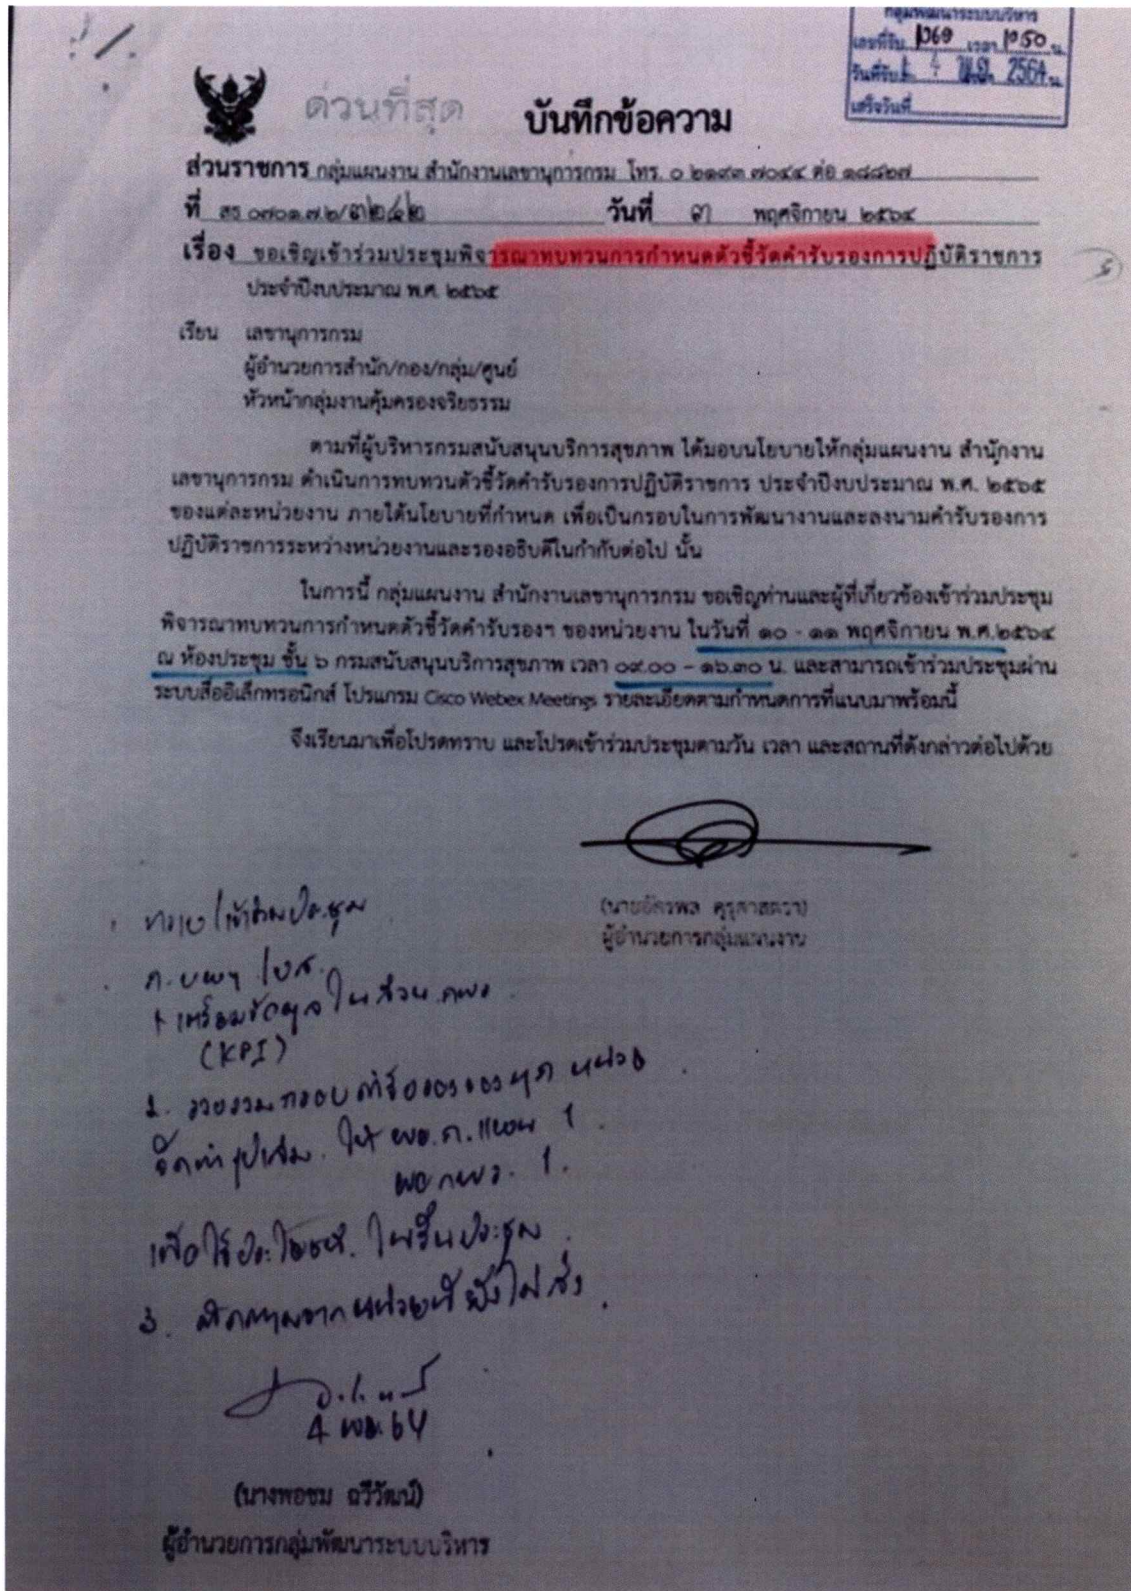 กลุ่มพัฒนาระบบบริหาร
เลขที่รับ 1069 เวลา 1050 น.
วันที่รับ 4 พ.ย. 2564 น.
เสร็จวันที่
ด่วนที่สุด
บันทึกข้อความ
ส่วนราชการ กลุ่มแผนงาน สำนักงานเลขานุการกรม โทร. ๐ ๒๑๙๓ ๗๐๔๔ ต่อ ๑๘๘๒๗
ที่ สธ ๐๗๐๑.๗.๒/๓๒๔๒ วันที่ ๓ พฤศจิกายน ๒๕๖๔
เรื่อง ขอเชิญเข้าร่วมประชุมพิจารณาทบทวนการกำหนดตัวชี้วัดคำรับรองการปฏิบัติราชการ
ประจำปีงบประมาณ พ.ศ. ๒๕๖๕
เรียน เลขานุการกรม
ผู้อำนวยการสำนัก/กอง/กลุ่ม/ศูนย์
หัวหน้ากลุ่มงานคุ้มครองจริยธรรม
ตามที่ผู้บริหารกรมสนับสนุนบริการสุขภาพ ได้มอบนโยบายให้กลุ่มแผนงาน สำนักงาน
เลขานุการกรม ดำเนินการทบทวนตัวชี้วัดคำรับรองการปฏิบัติราชการ ประจำปีงบประมาณ พ.ศ. ๒๕๖๕
ของแต่ละหน่วยงาน ภายใต้นโยบายที่กำหนด เพื่อเป็นกรอบในการพัฒนางานและลงนามคำรับรองการ
ปฏิบัติราชการระหว่างหน่วยงานและรองอธิบดีในกำกับต่อไป นั้น
ในการนี้ กลุ่มแผนงาน สำนักงานเลขานุการกรม ขอเชิญท่านและผู้ที่เกี่ยวข้องเข้าร่วมประชุม
พิจารณาทบทวนการกำหนดตัวชี้วัดคำรับรองฯ ของหน่วยงาน ในวันที่ ๑๐ - ๑๑ พฤศจิกายน พ.ศ.๒๕๖๔
ณ ห้องประชุม ชั้น ๖ กรมสนับสนุนบริการสุขภาพ เวลา ๐๙.๐๐ - ๑๖.๓๐ น. และสามารถเข้าร่วมประชุมผ่าน
ระบบสื่ออิเล็กทรอนิกส์ โปรแกรม Cisco Webex Meetings รายละเอียดตามกำหนดการที่แนบมาพร้อมนี้
จึงเรียนมาเพื่อโปรดทราบ และโปรดเข้าร่วมประชุมตามวัน เวลา และสถานที่ดังกล่าวต่อไปด้วย
ผู้อำนวยการกลุ่มแผนงาน
ทราบ/เข้าร่วมประชุม
เตรียมข้อมูลในส่วน กพร.
(KPI)
2. รวบรวมกรอบคำรับรองของทุกหน่วย
จัดทำรูปเล่ม. ให้ ผอ.ก.แผน 1
ผอ กพร. 1.
เพื่อใช้ประโยชน์. ในวันประชุม
3. ติดตามจากหน่วยที่ยังไม่ส่ง
4 พย. 64
(นางพอชม ฉวีวัฒน์)
ผู้อำนวยการกลุ่มพัฒนาระบบบริหาร